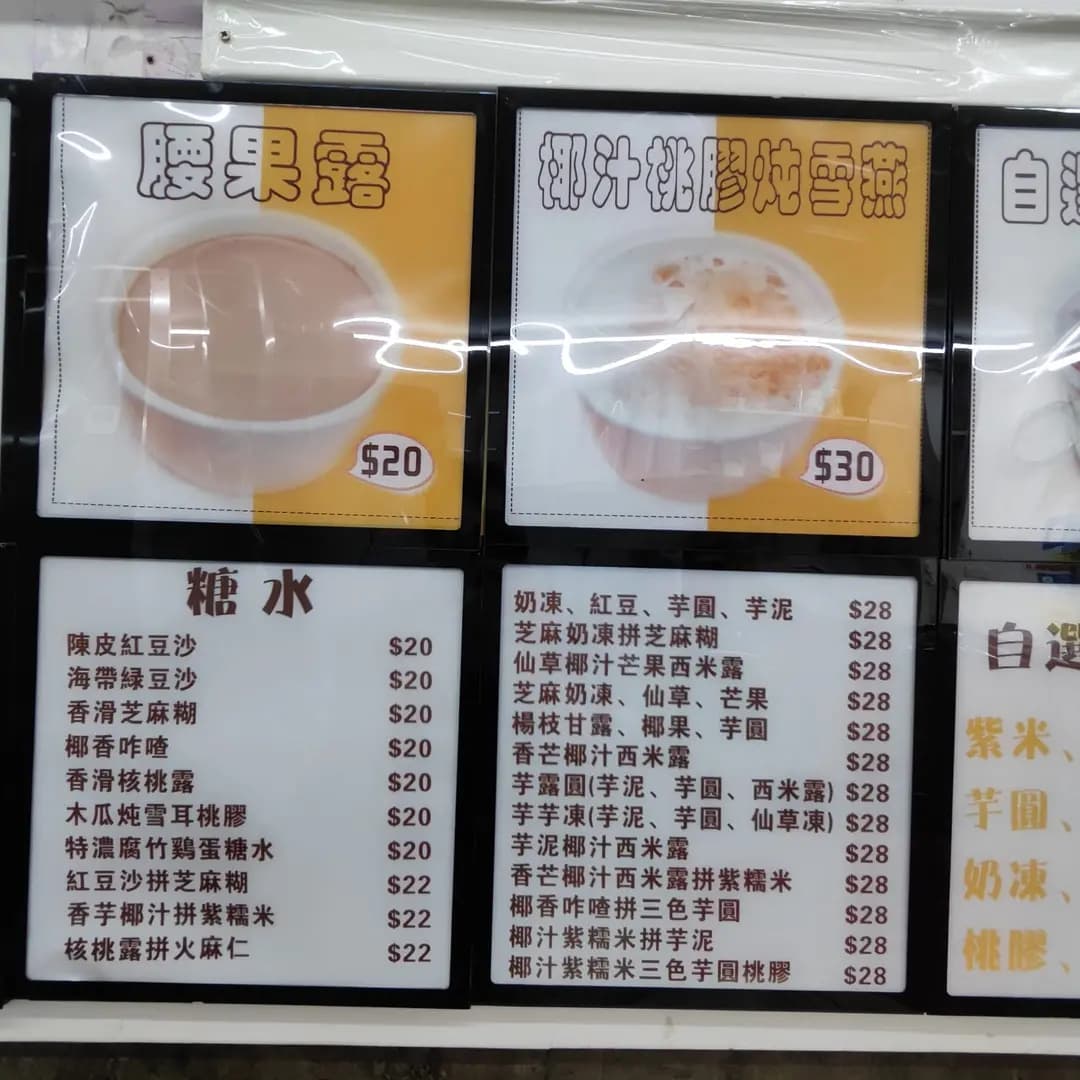 腰果露
$20
椰汁桃膠炖雪燕
$30
自
糖水
陳皮紅豆沙 $20
海帶緑豆沙 $20
香滑芝麻糊 $20
椰香咋喳 $20
香滑核桃露 $20
木瓜炖雪耳桃膠 $20
特濃腐竹鷄蛋糖水 $20
紅豆沙拼芝麻糊 $22
香芋椰汁拼紫糯米 $22
核桃露拼火麻仁 $22
奶凍、紅豆、芋圓、芋泥 $28
芝麻奶凍拼芝麻糊 $28
仙草椰汁芒果西米露 $28
芝麻奶凍、仙草、芒果 $28
楊枝甘露、椰果、芋圓 $28
香芒椰汁西米露 $28
芋露圓(芋泥、芋圓、西米露) $28
芋芋凍(芋泥、芋圓、仙草凍) $28
芋泥椰汁西米露 $28
香芒椰汁西米露拼紫糯米 $28
椰香咋喳拼三色芋圓 $28
椰汁紫糯米拼芋泥 $28
椰汁紫糯米三色芋圓桃膠 $28
自選
紫米、
芋圓、
奶凍、
桃膠、